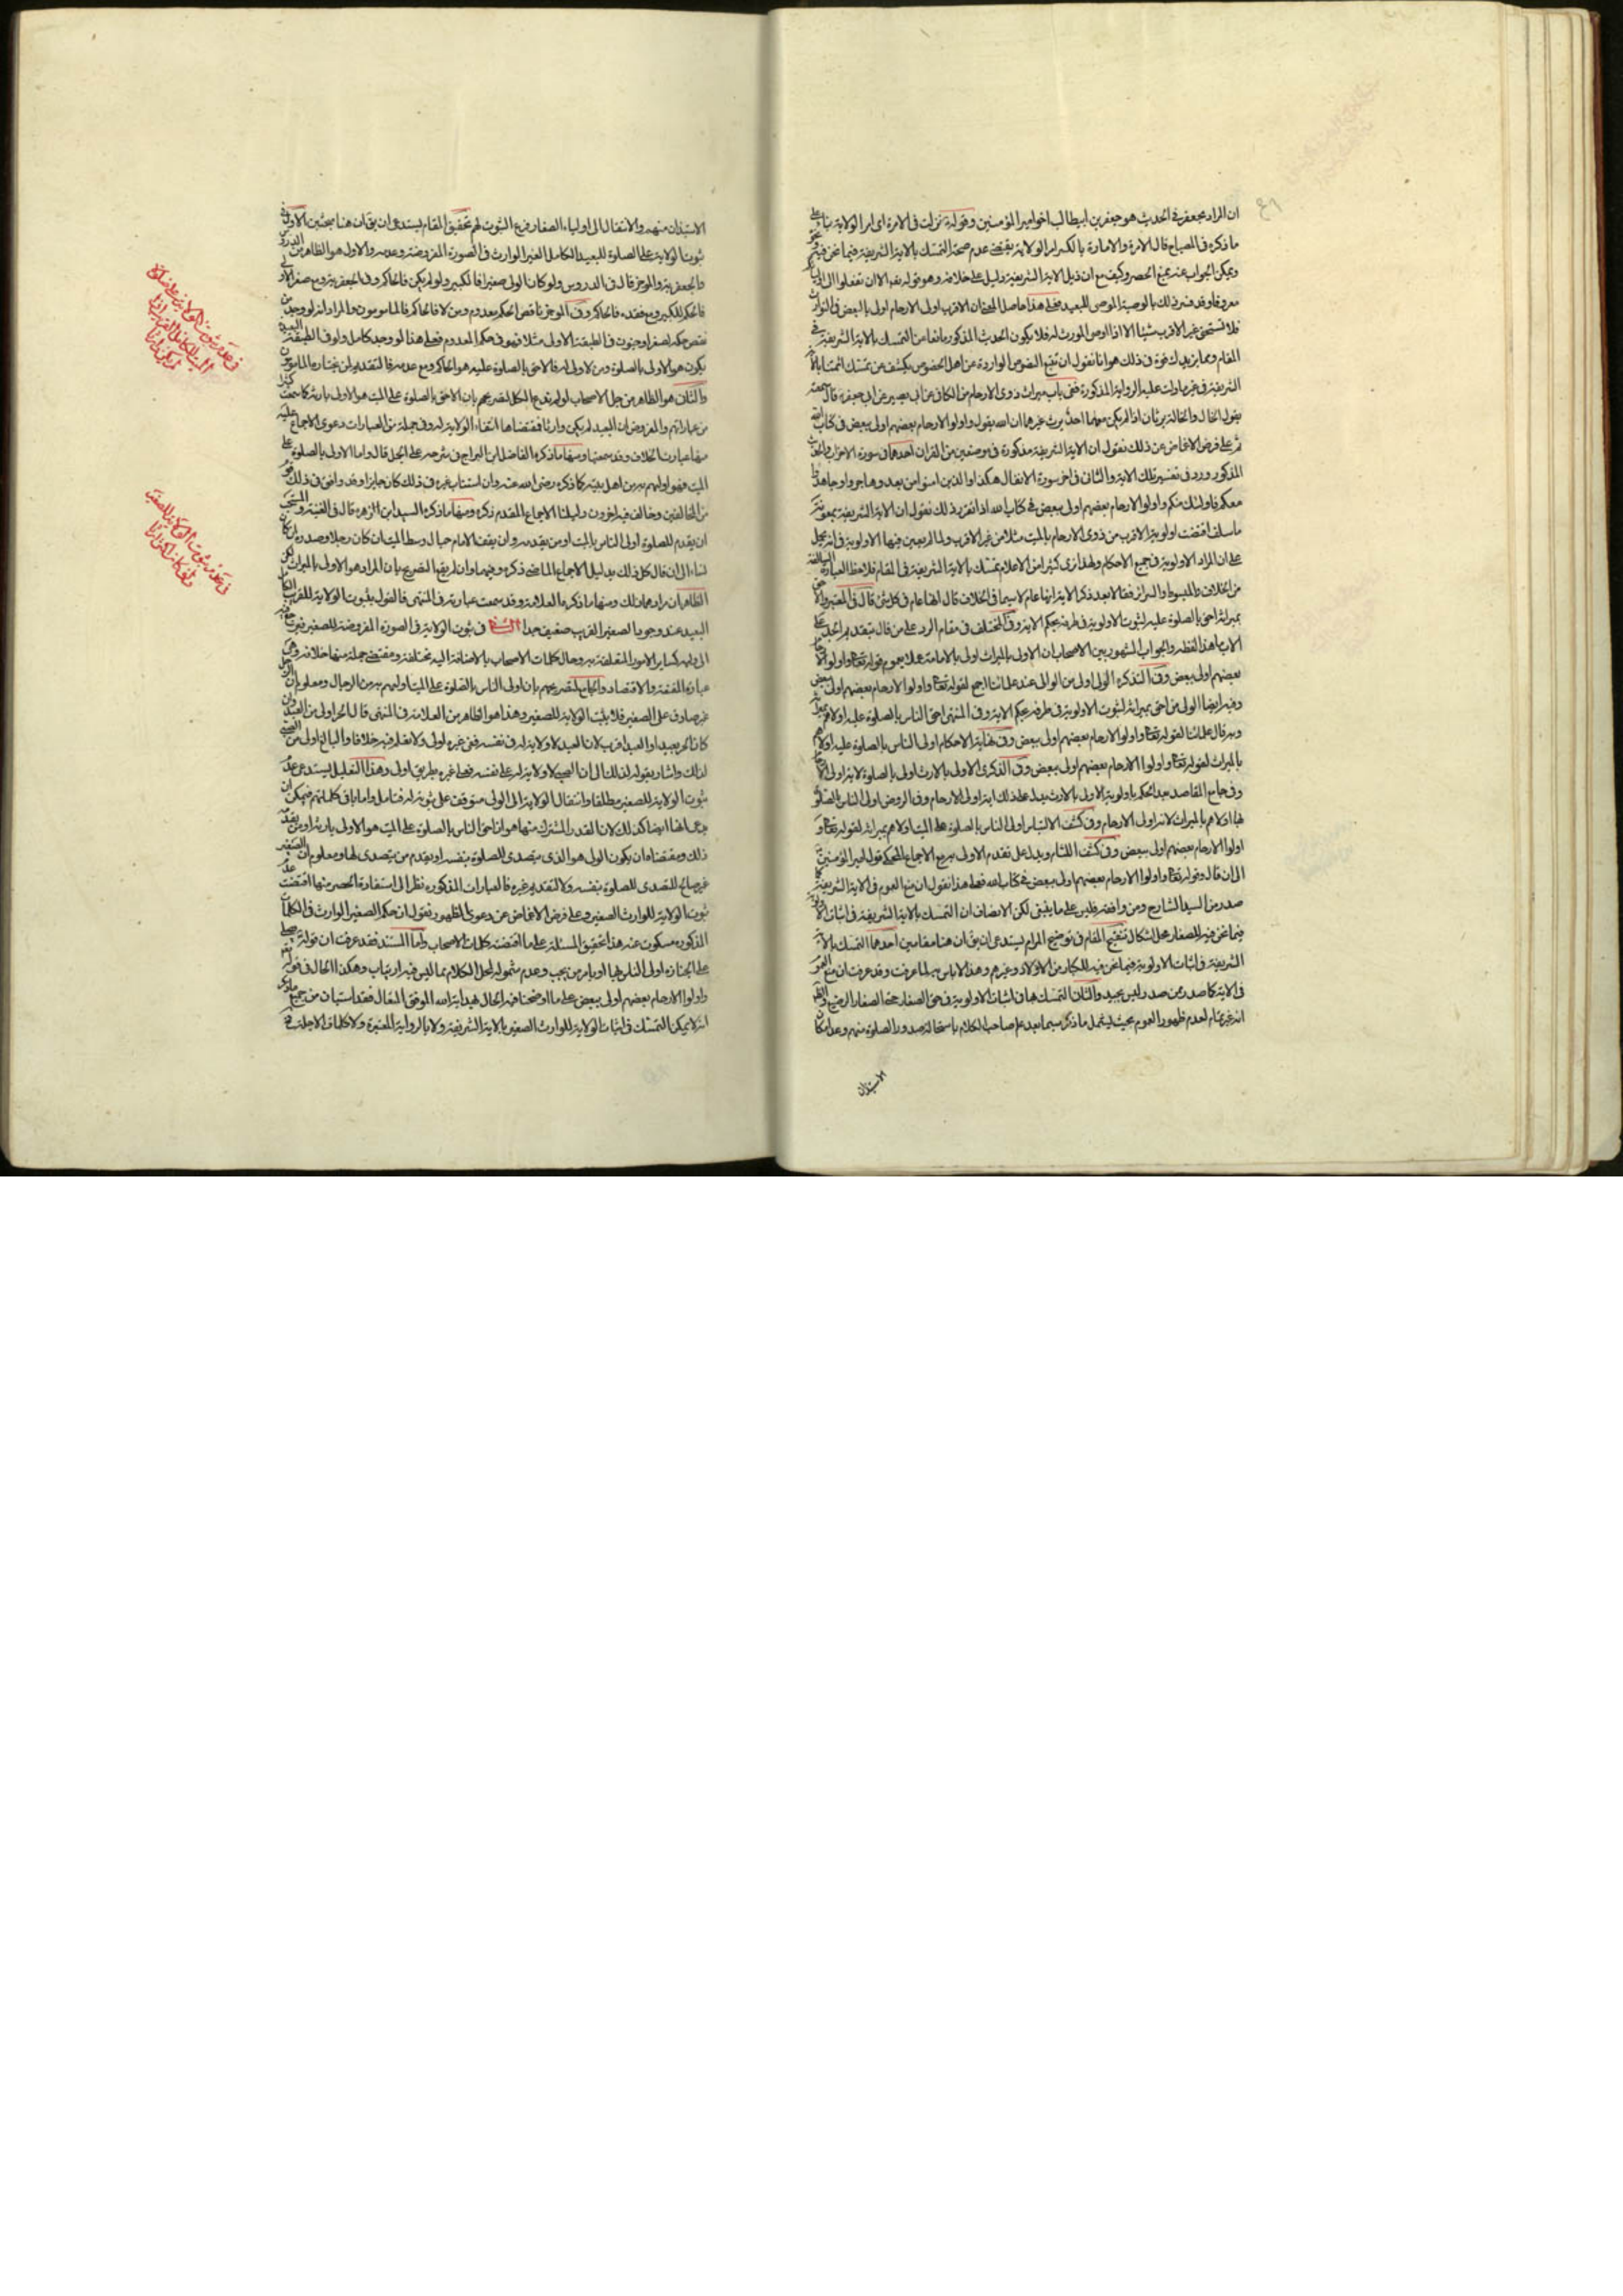 ان المراد بجعفر في الحديث هو جعفر بن ابيطالب اخو امير المؤمنين وقوله نزلت في الامرة اى امر الولاية بناء على
ما ذكره في المصباح قال الامرة والامارة بالكسر الولاية يقتضي عدم صحة التمسك بالاية الشريفة فيما نحن فيه
ويمكن الجواب عنه بمنع الحصر وكيف مع ان ذيل الاية الشريفة دليل على خلافه وهو قوله نعم الا ان تفعلوا الى اوليائكم
معروفا وقد فسر ذلك بالوصية الموصى للبعيد فعلى هذا حاصل المعنى ان الاقرب اولى الارحام اولى بالبعض في التوارث
فلا تستحق غير الاقرب شيئا الا اذا اوصى المورث له فلا يكون الحديث المذكور مانعا من التمسك بالاية الشريفة في
المقام ومما يزيدك قوة في ذلك هو انا نقول ان تتبع النصوص الواردة عن اهل الخصوص يكشف عن تمسك ائمتنا بالاية
الشريفة في غير ما دلت عليه الرواية المذكورة ففي باب ميراث ذوى الارحام من الكافي عن ابى بصير عن ابى جعفر قال سمعته
يقول الخال والخالة يرثان اذا لم يكن معهما احد يرث غيرهما ان الله يقول واولوا الارحام بعضهم اولى ببعض في كتاب الله
ثم على فرض الاغماض عن ذلك نقول ان الاية الشريفة مذكورة في موضعين من القران احدهما في سورة الاحزاب والحديث
المذكور ورد في تفسير تلك الاية والثاني في اخر سورة الانفال هكذا والذين امنوا من بعد وهاجروا وجاهدوا
معكم فاولئك منكم واولوا الارحام بعضهم اولى ببعض في كتاب الله اذا تقرر ذلك نقول ان الاية الشريفة بمعونة
ما سلف اقتضت اولوية الاقرب من ذوى الارحام بالميت مثلا من غير الاقرب ولما لم يعين فيها الاولوية في انه يحمل
على ان المراد الاولوية في جميع الاحكام ولهذا نرى كثيرا من الاعلام تمسك بالاية الشريفة في المقام فلاحظ العبارة السالفة
من الخلاف والمبسوط والسرائر فقالا بعد ذكر الاية انها عام لا سيما في الخلاف قال انها عام في كل شئ قال في المعتبر والاحق
بميراثه احق بالصلوة عليه لثبوت الاولوية في طرفه بحكم الاية وفي المختلف في مقام الرد على من قال بتقديم الجد على
الاب ما هذا لفظه والجواب المشهور بين الاصحاب ان الاولى بالميراث اولى بالامامة عملا بعموم قوله تعالى واولوا الارحام
بعضهم اولى ببعض وفي التذكرة الولى اولى من الوالى عند علمائنا اجمع لقوله تعالى واولوا الارحام بعضهم اولى ببعض
وفيه ايضا الولى من احق بميراثه لثبوت الاولوية في طرفه بحكم الاية وفي المنتهى احق الناس بالصلوة عليه اولاهم بميراثه
وبه قال علمائنا لقوله تعالى واولوا الارحام بعضهم اولى ببعض وفي نهاية الاحكام اولى الناس بالصلوة عليه اولاهم
بالميراث لقوله تعالى واولوا الارحام بعضهم اولى ببعض وفي الذكرى الاولى بالارث اولى بالصلوة لاية اولى الارحام
وفي جامع المقاصد عند الحكم باولوية الاولى بالارث يدل على ذلك اية اولى الارحام وفي الروض اولى الناس بالصلوة
عليها اولاهم بالميراث لاية اولى الارحام وفي كشف الالتباس اولى الناس بالصلوة على الميت اولاهم بميراثه لقوله تعالى و
اولوا الارحام بعضهم اولى ببعض وفي كشف اللثام ويدل على تقدم الاولى به مع الاجماع المحكى قول امير المؤمنين
الى ان قال وقوله تعالى واولوا الارحام بعضهم اولى ببعض في كتاب الله فعلى هذا نقول ان منع العموم في الاية الشريفة كما
صدر من السيد الشارح ومن وافقه فليس على ما ينبغى لكن الانصاف ان التمسك بالاية الشريفة في اثبات الاولوية
فيما نحن فيه للصغار محل اشكال تنقيح المقام في توضيح المرام يستدعى ان يق ان هنا مقامين احدهما التمسك بالاية
الشريفة في اثبات الاولوية فيما نحن فيه للكبار من الاولاد وغيرهم وهذا لا باس به لما عرفت وقد عرفت ان منع العموم
في الاية كما صدر ممن صدر ليس بجيد والثاني التمسك بها في اثبات الاولوية في حق الصغار حتى الصغار الرضيع والظاهر
انه غير تمام لعدم ظهور العموم بحيث يشمل ما ذكر سيما بعد علم صاحب الكلام باستحالة صدور الصلوة منهم وعدم امكان
الاستيذان
الاستيذان منهم والانتقال الى اولياء الصغار فرع الثبوت لهم تحقيق المقام يستدعى ان يق ان هنا مبحثين الاول في
ثبوت الولاية على الصلوة للبعيد الكامل الغير الوارث في الصورة المفروضة وعدمه والاول هو الظاهر من الدروس
والجعفرية والموجز قال في الدروس ولو كان الولى صغيرا فالكبير ولو لم يكن فالحاكم وفي الجعفرية ومع صغر الاولى
فالحكم للكبير ومع فقده فالحاكم وفي الموجز ناقص الحكم معدوم ومن لا فالحاكم فالمامومون والمراد انه لو وجد من
نقص حكمه لصغر او جنون في الطبقة الاولى مثلا فهو في حكم المعدوم فعلى هذا لو وجد كامل ولو في الطبقة البعيدة
يكون هو الاولى بالصلوة ومن لا ولى له فالاحق بالصلوة عليه هو الحاكم ومع عدمه فالتقديم لمن يختاره المامومون
والثاني هو الظاهر من جل الاصحاب لو لم ندع الكل لتصريحهم بان الاحق بالصلوة على الميت هو الاولى بارثه كما سمعت كثيرا
من عباراتهم والمفروض ان البعيد لم يكن وارثا فمقتضاها انتفاء الولاية له وفي جملة من العبارات دعوى الاجماع عليه
منها عبارت الخلاف وقد سمعتها ومنها ما ذكره الفاضل ابن البراج في شرحه على الجمل قال واما الاولى بالصلوة على
الميت فهو اولهم به من اهل بيته كما ذكره رضى الله عنه وان استناب غيره في ذلك كان جايزا وقد وافق في ذلك قوم
من المخالفين وخالف فيه اخرون دليلنا الاجماع المقدم ذكره ومنها ما ذكره السيد ابن الزهره قال في الغنية والمستحب
ان يقدم للصلوة اولى الناس بالميت او من يقدمه وان يقف الامام حيال وسط الميت ان كان رجلا وصدره ان كان
نساء الى ان قال كل ذلك بدليل الاجماع الماضى ذكره وفيهما وان لم يقع التصريح بان المراد هو الاولى بالميراث لكن
الظاهر ان مرادهما ذلك ومنها ما ذكره العلامة وقد سمعت عبارته في المنتهى فالقول بثبوت الولاية للقريب الكامل
البعيد عند وجود الصغير القريب ضعيف جدا الثاني في ثبوت الولاية في الصورة المفروضة للصغير فيرجع
الى وليه كساير الامور المتعلقة به وحال كلمات الاصحاب بالاضافة اليه مختلفة ومقتضى جملة منها خلافه وهى
عبارة المقنعة والاقتصاد والجامع لتصريحهم بان اولى الناس بالصلوة على الميت اوليهم به من الرجال ومعلوم ان الرجل
غير صادق على الصغير فلا يثبت الولاية للصغير وهذا هو الظاهر من العلامة في المنتهى قال الحر اولى من العبد وان
كان الحر بعيدا والعبد اقرب لان العبد لا ولاية له في نفسه ففي غيره اولى ولا نعلم فيه خلافا والبالغ اولى من الصبى
لذلك واشار بقوله لذلك الى ان الصبى لا ولاية له على نفسه فعلى غيره بطريق اولى وهذا التعليل يستدعى عدم
ثبوت الولاية للصغير مطلقا وانتقال الولاية الى الولى متوقف على ثبوته له فتامل واما باقى كلماتهم فيمكن ان
يدعى انها ايضا كذلك لان القدر المشترك منها هو ان احق الناس بالصلوة على الميت هو الاولى بارثه او من يقدمه
ذلك ومقتضاه ان يكون الولى هو الذى يتصدى للصلوة بنفسه او يقدم من يتصدى لها ومعلوم ان الصغير
غير صالح للتصدى للصلوة بنفسه ولا لتقديم غيره فالعبارات المذكورة نظرا الى استفادة الحصر منها اقتضت عدم
ثبوت الولاية للوارث الصغير وعلى فرض الاغماض عن دعوى الظهور نقول ان حكم الصغير الوارث في الكلمات
المذكورة مسكوت عنه هذا تحقيق المسئلة على ما اقتضته كلمات الاصحاب واما المستند فقد عرفت ان قوله يصلى
على الجنازة اولى الناس بها او يامر من يحب وعدم شموله لمحل الكلام مما ليس فيه ارتياب وهكذا الحال في قوله تعم
واولوا الارحام بعضهم اولى ببعض على ما اوضحنا فيه الحال بهداية الله الموفق المتعال فقد استبان من جميع ما ذكر
انه لا يمكن التمسك في اثبات الولاية للوارث الصغير بالاية الشريفة ولا بالرواية المعتبرة ولا كلمات الاجلة
في عدم ثبوت الولاية على صلوة
الميت للكامل الغير الوارث اذا
لم يكن وارثا
في عدم ثبوت الولاية للصغير
وان كان وارثا